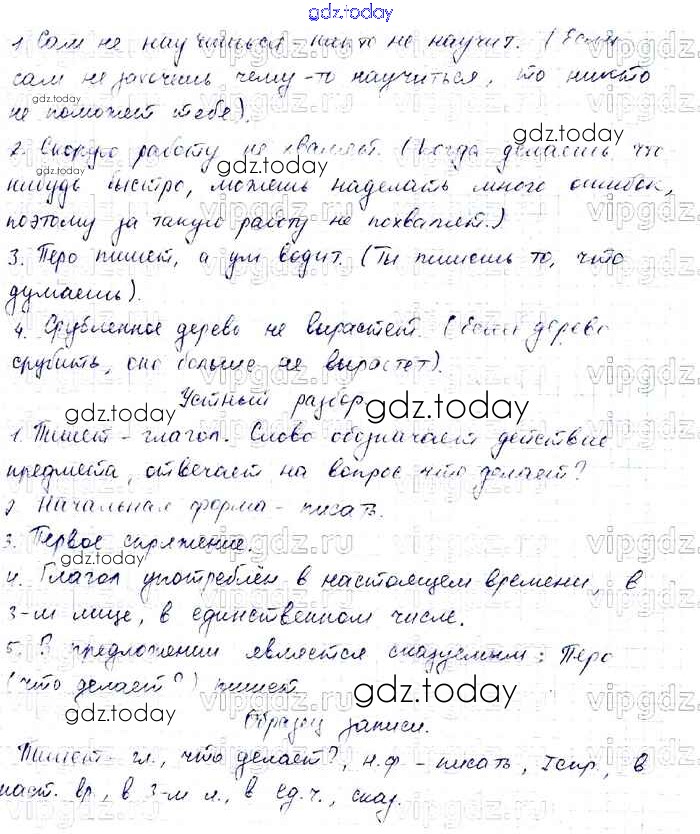 gdz.today
1. Сам не научишься, никто не научит. (Если
сам не захочешь чему-то научиться, то никто
не поможет тебе).
2. Скорую работу не хвалят. (Когда делаешь что
нибудь быстро, можешь наделать много ошибок,
поэтому за такую работу не похвалят.)
3. Перо пишет, а ум водит. (Ты пишешь то, что
думаешь).
4. Срубленное дерево не вырастет. (Если дерево
срубить, оно больше не вырастет).
Устный разбор
1. Пишет - глагол. Слово обозначает действие
предмета, отвечает на вопрос что делает?
2. Начальная форма - писать.
3. Первое спряжение.
4. Глагол употреблён в настоящем времени, в
3-м лице, в единственном числе.
5. В предложении является сказуемым: Перо
(что делает?) пишет
Образец записи.
Пишет - гл., что делает?, н.ф - писать, I спр., в
наст. вр., в 3-м л., в ед.ч., сказ.
gdz.today
gdz.today
gdz.today
gdz.today
gdz.today
gdz.today
vipgdz.ru